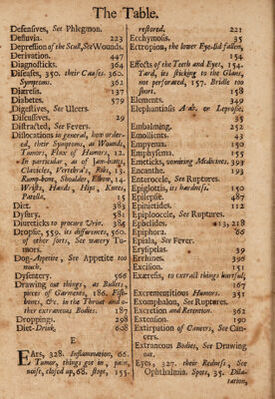 The Table.
Defensives, See Phlegmon.
Defluvia. 223
Depression of the Scull, See Wounds.
Derivation. 447
Diagnosticks. 364
Diseases, 350. their Causes. 360.
Symptoms. 362
Diæresis. 137
Diabetes. 579
Digestives, See Ulcers.
Discussives. 29
Distracted, See Fevers.
Dislocations in general, how ordered, their Symptoms, as Wounds,
Tumors, Flux of Humors, 12.
In particular, as of Jaw-bone,
Clavicles, Vertebra's, Ribs, 13.
Rump-bone, Shoulder, Elbow, 14.
Wrists, Hands, Hips, Knees,
Patella, 15
312
Dysury. 581
Diureticks to procure Urin. 384
Dropsie, 559. its differences, 560.
of other sorts, See watery Tumors.
Dog-Appetite, See Appetite too
much.
Dysentery. 566
Drawing out things, as Bullets,
pieces of Garments, 186. Fish-
bones, &c. in the Throat and other
extraneous Bodies. 187
Droppings. 298
Diet-Drink. 608
E
EArs, 328. Inflammation, 66.
Tumor, things got in, pain,
noise, closed up, 68. stopt, 155.
restored. 221
Ecchymosis. 35
Ectropion, the lower Eye-lid fallen,
154
Effects of the Teeth and Eyes, 154.
Yard, its sticking to the Glans,
not perforated, 157. Bridle too
short. 158
Elements. 349
Elephantiasis Arab. or Leprosie.
35
Embalming. 252
Emollients. 43
Empyema. 150
Emphysema. 155
Emeticks, vomiting Medicines. 399
Encanthe. 193
Enterocele, See Ruptures.
Epiglottis, its hardness. 150
Epilepsie. 487
Epinictides. 112
Epiploocele, See Ruptures.
Epiphora. 66
Epiala, See Fever.
Erysipelas. 39
Errhines. 396
Excision. 151
Exæresis, to extract things hurtful,
167
Excrementitious Humors. 351
Exomphalon, See Ruptures.
Excretion and Retention. 362
Extension. 190
Extirpation of Cancers, See Cancers.
Extraneous Bodies, See Drawing
out.
Eyes, 327. their Redness, See
Ophthalmia. Spots, 35. Dilatation,